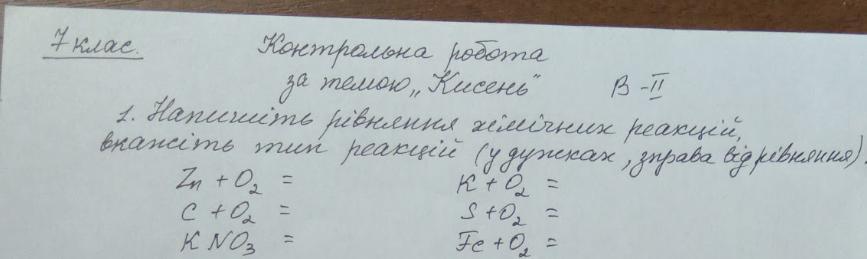 7 клас. Контрольна робота
за темою „Кисень" В-II
1. Напишіть рівняння хімічних реакцій,
вкажіть тип реакцій (у дужках, зправа від рівняння).
Zn + O₂ = K + O₂ =
C + O₂ = S + O₂ =
K NO₃ = Fe + O₂ =